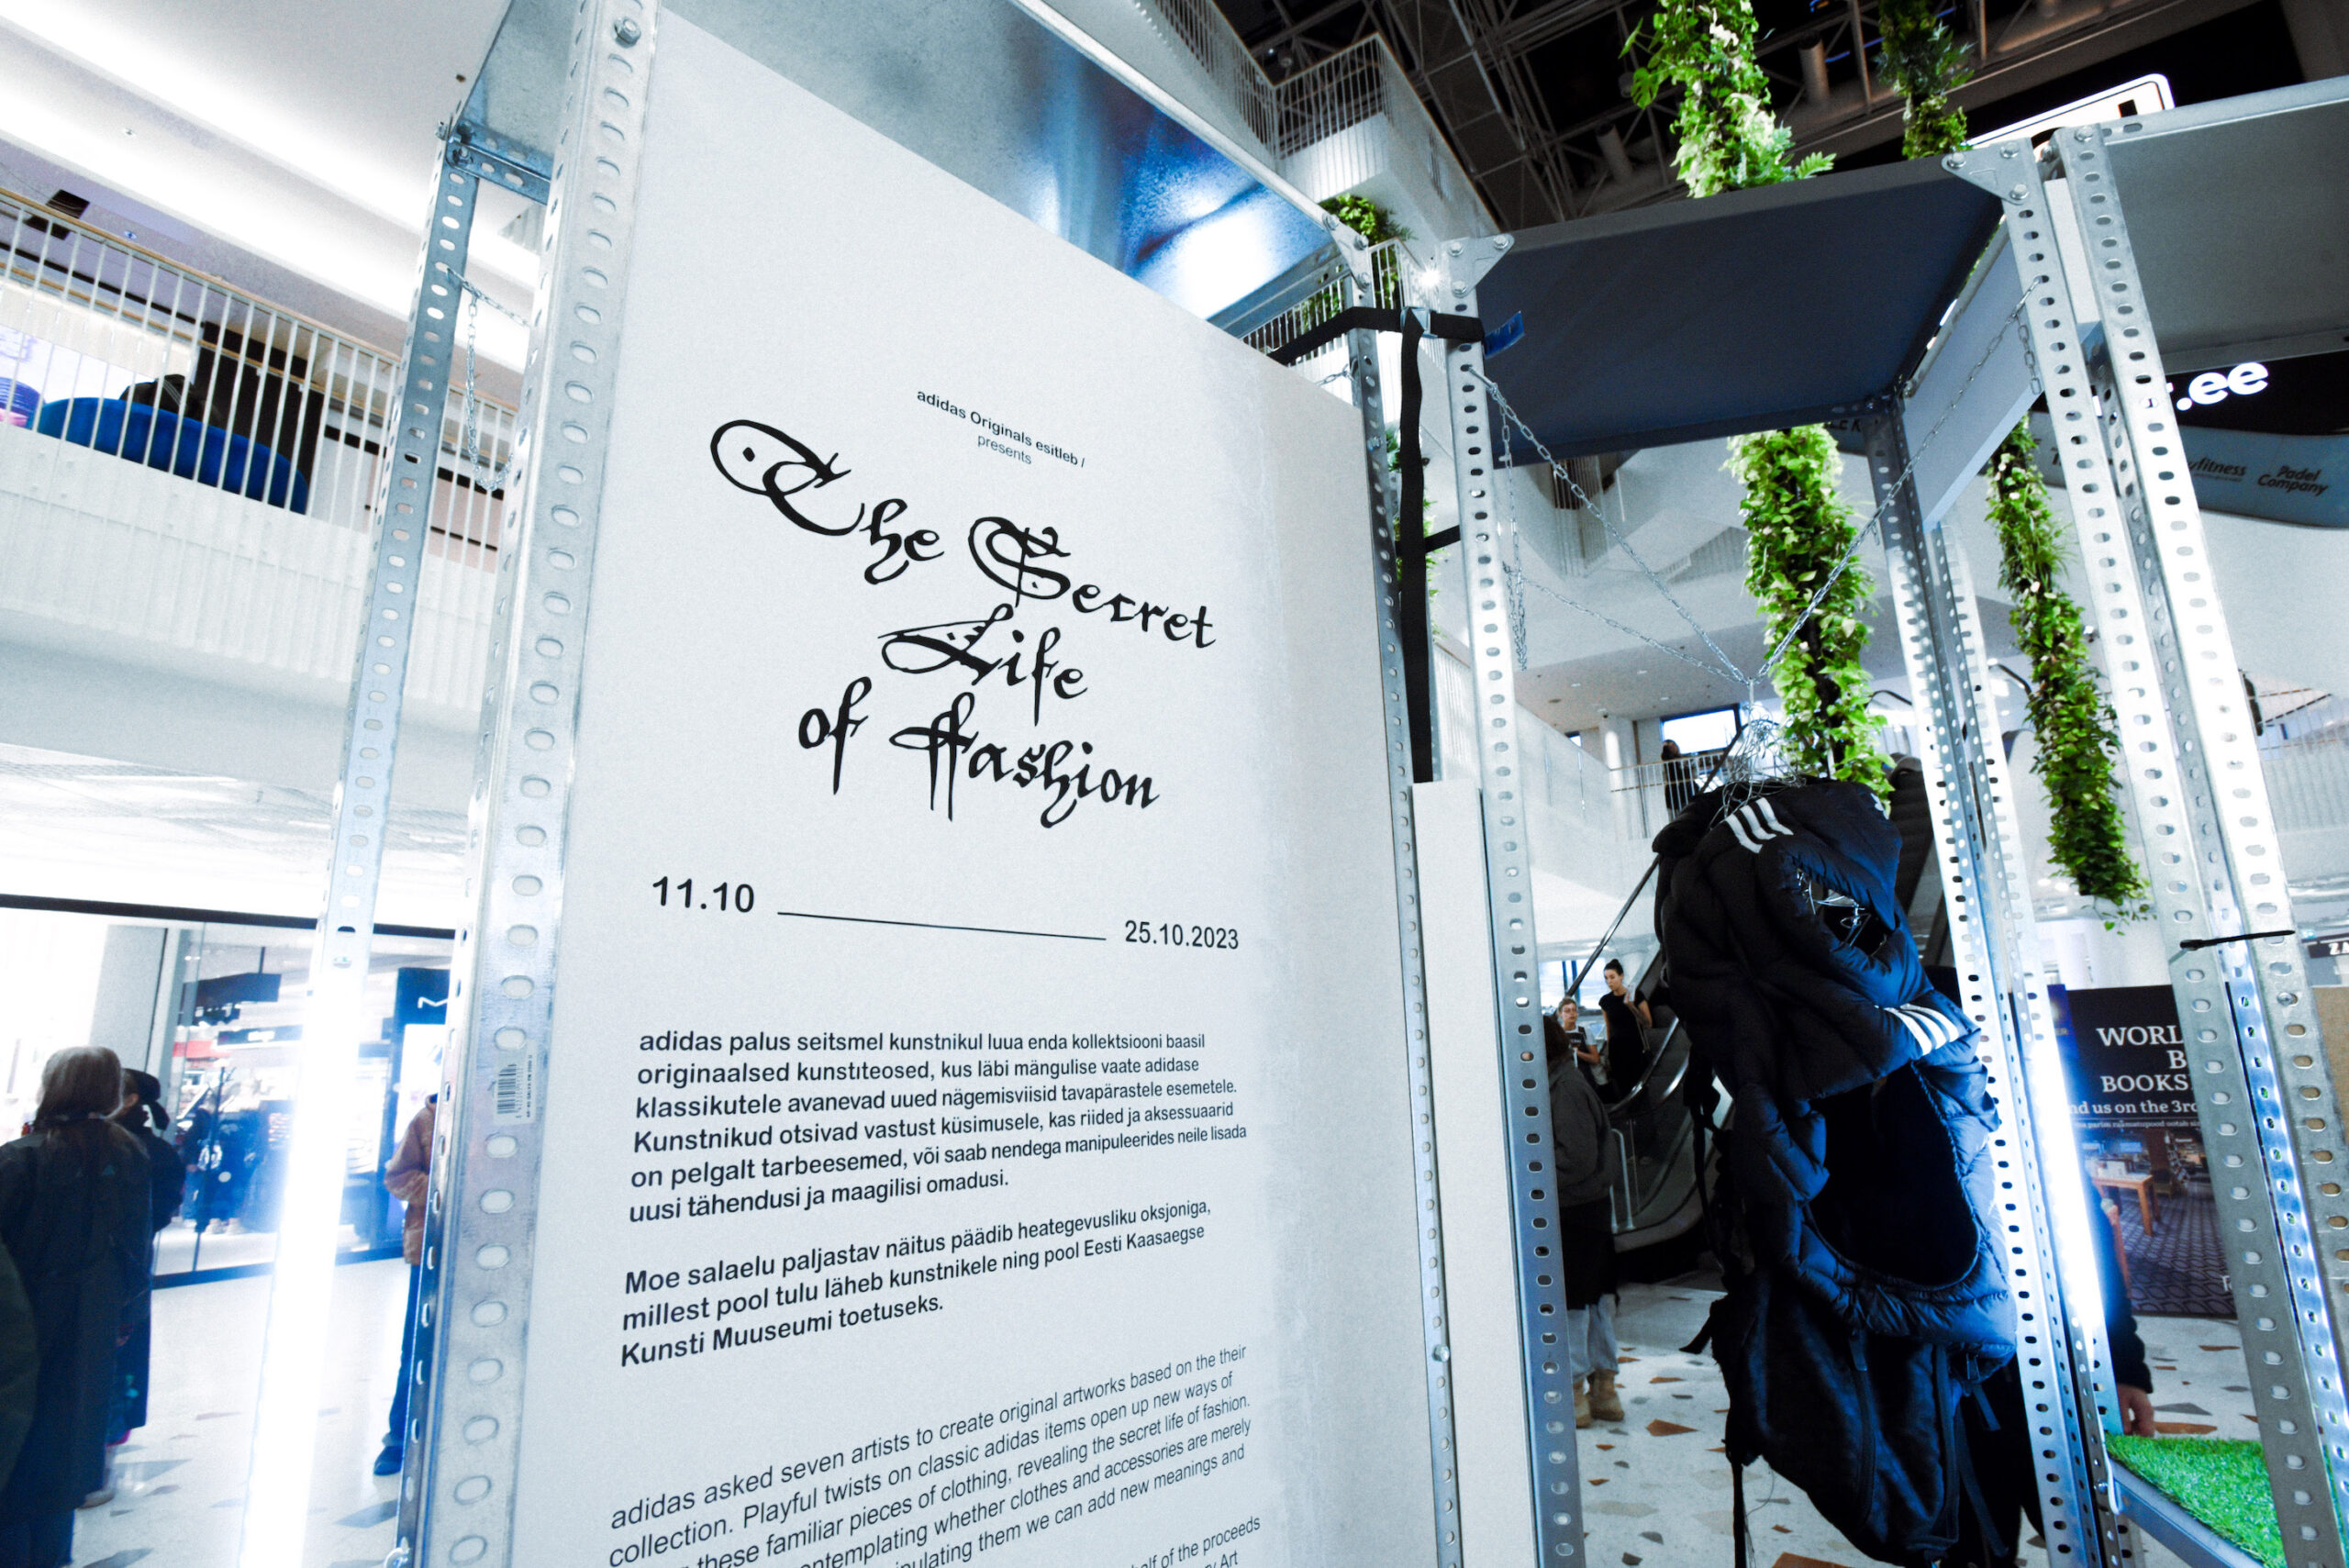 adidas Originals esitleb /
presents
The Secret
Life
of Fashion
11.10
25.10.2023
adidas palus seitsmel kunstnikul luua enda kollektsiooni baasil
originaalsed kunstiteosed, kus läbi mängulise vaate adidase
klassikutele avanevad uued nägemisviisid tavapärastele esemetele.
Kunstnikud otsivad vastust küsimusele, kas riided ja aksessuaarid
on pelgalt tarbeesemed, või saab nendega manipuleerides neile lisada
uusi tähendusi ja maagilisi omadusi.
Moe salaelu paljastav näitus päädib heategevusliku oksjoniga,
millest pool tulu läheb kunstnikele ning pool Eesti Kaasaegse
Kunsti Muuseumi toetuseks.
adidas asked seven artists to create original artworks based on the their
collection. Playful twists on classic adidas items open up new ways of
these familiar pieces of clothing, revealing the secret life of fashion.
whether clothes and accessories are merely
them we can add new meanings and
half of the proceeds
Art
.ee
Padel
Company
BOOKS
us on the 3rd